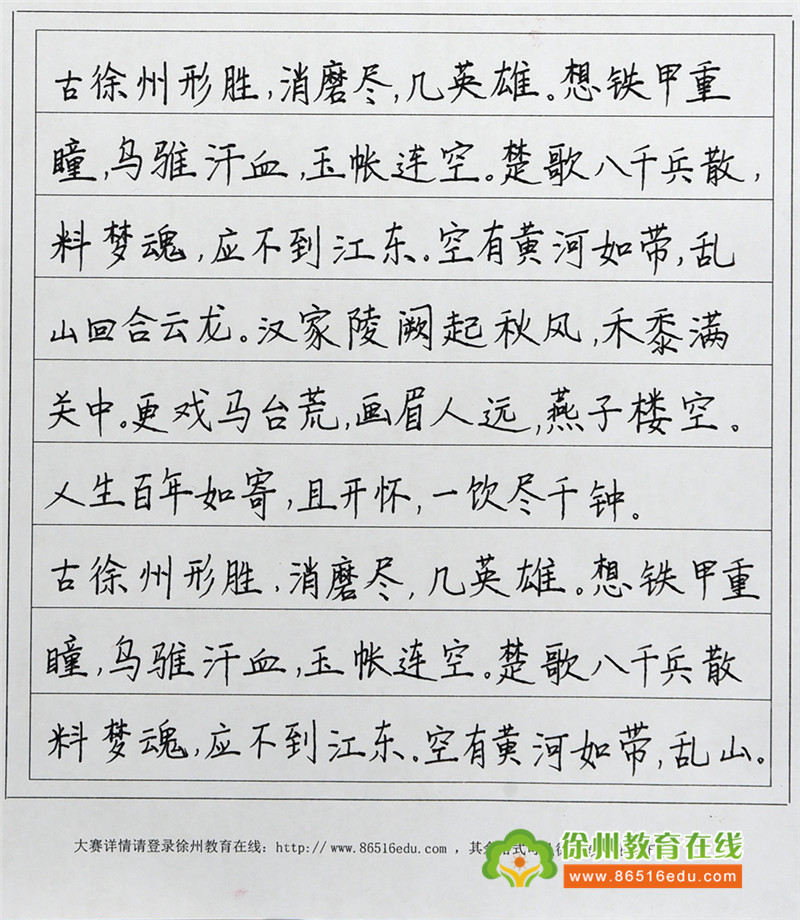 古徐州形胜,消磨尽,几英雄。想铁甲重
瞳,乌骓汗血,玉帐连空。楚歌八千兵散,
料梦魂,应不到江东。空有黄河如带,乱
山回合云龙。汉家陵阙起秋风,禾黍满
关中。更戏马台荒,画眉人远,燕子楼空。
人生百年如寄,且开怀,一饮尽千钟。
古徐州形胜,消磨尽,几英雄。想铁甲重
瞳,乌骓汗血,玉帐连空。楚歌八千兵散
料梦魂,应不到江东。空有黄河如带,乱山。
大赛详情请登录徐州教育在线: http://www.86516edu.com ,其
徐州教育在线
www.86516edu.com